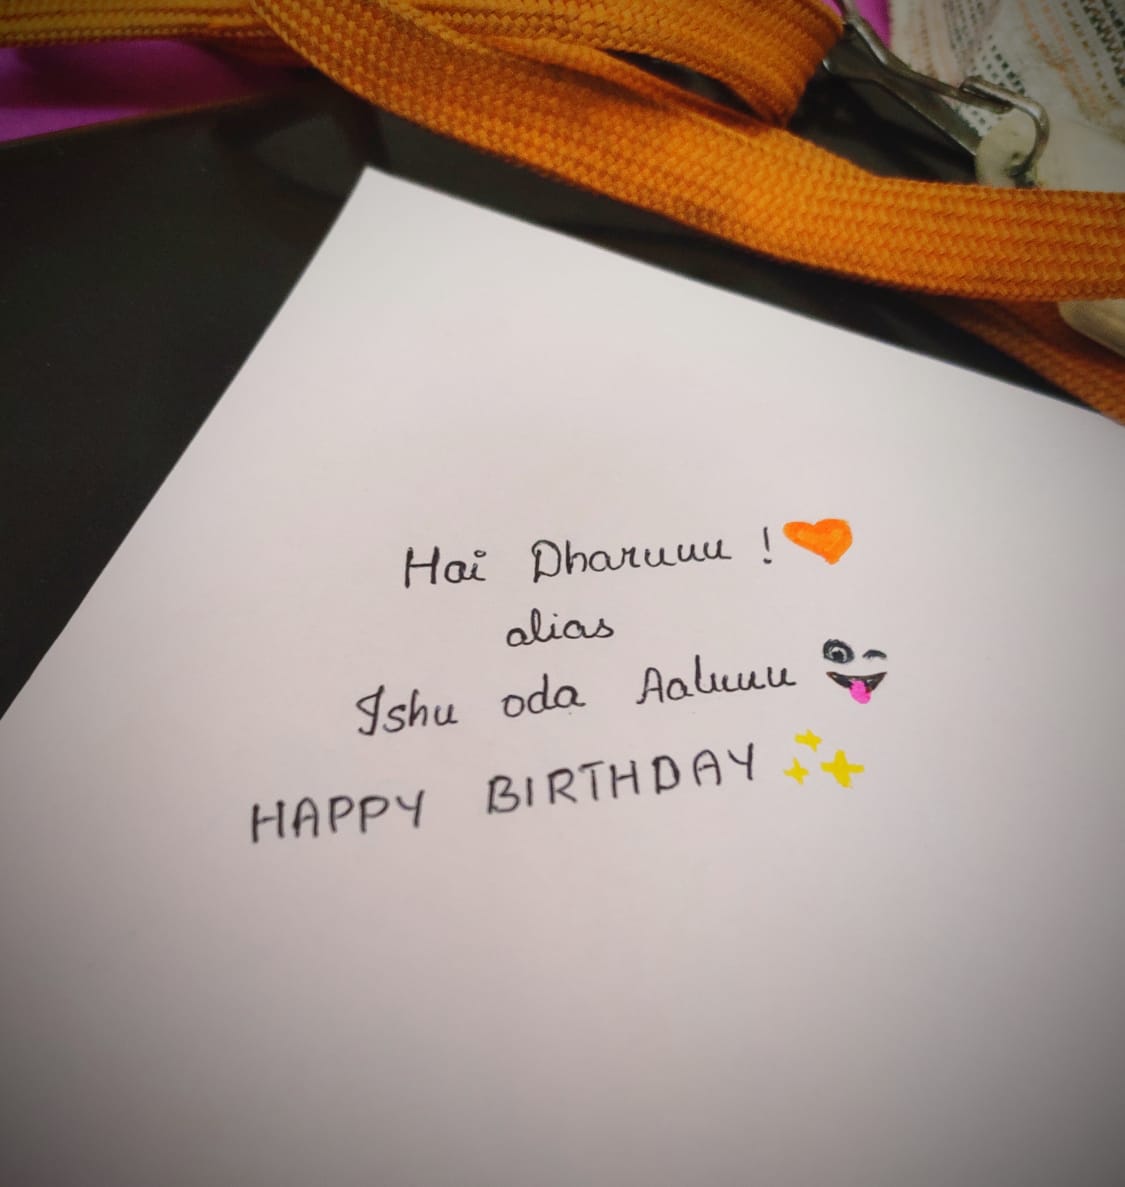 Hai Dharuuu ! 🧡
alias
Ishu oda Aaluuu 😜
HAPPY BIRTHDAY ✨